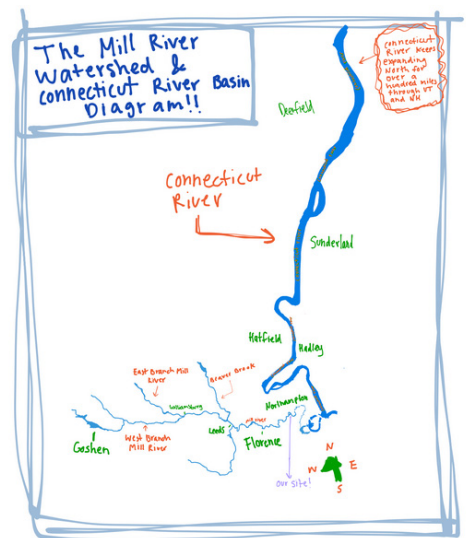 The Mill River
Watershed &
Connecticut River Basin
Diagram!!
Connecticut
River Keeps
expanding
North for
over a
hundred miles
through VT
and NH
Deerfield
Connecticut
River
Sunderland
Hatfield
Hadley
East Branch Mill
River
Beaver Brook
Williamsburg
Northampton
Goshen
West Branch
Mill River
Leeds
Mill River
Florence
our site!
N
W E
S